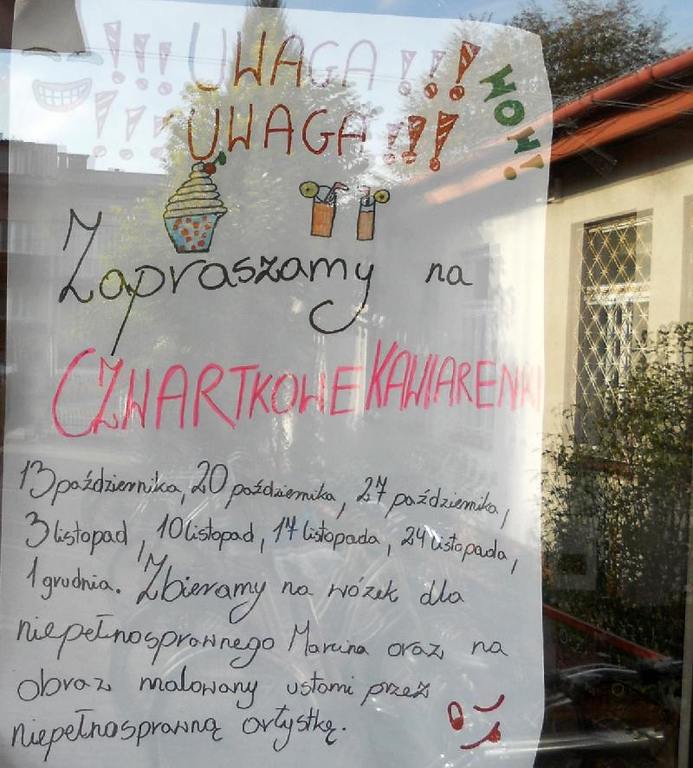 !!! UWAGA !!!
!!! UWAGA !!!
WOW!
Zapraszamy na
CZWARTKOWE KAWIARENKI
13 października, 20 października, 27 października,
3 listopad, 10 listopad, 17 listopada, 24 listopada,
1 grudnia. Zbieramy na wózek dla
niepełnosprawnego Marcina oraz na
obraz malowany ustami przez
niepełnosprawną artystkę.